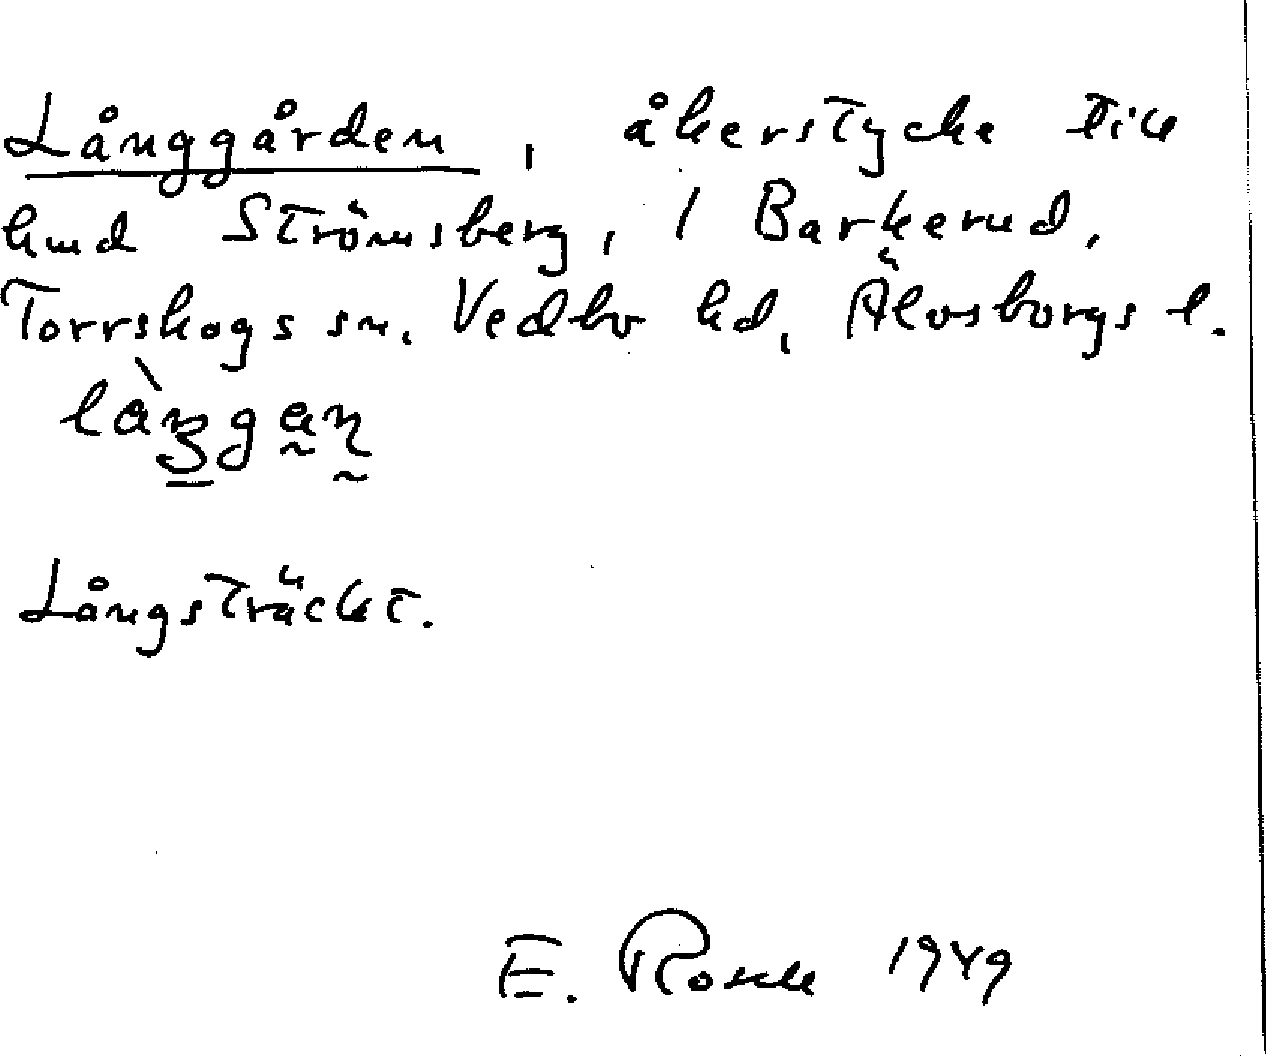 Långgården, åkerstycke till
hmd Strömsberg, 1 Barkerud,
Torrskogs sn, Vedbo hd, Älvsborgs l.
Långsträckt.
E. 1949